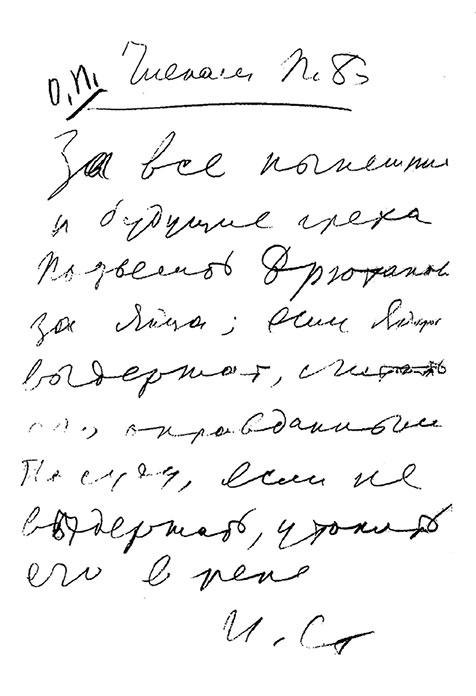 Членам П.Б.
За все нынешни
и будущие греха
Подвесить Брюханов
за яйца; если яйца
выдержат, считать
его оправданным
По суду, если не
выдержат, утопить
его в реке
И. Ст